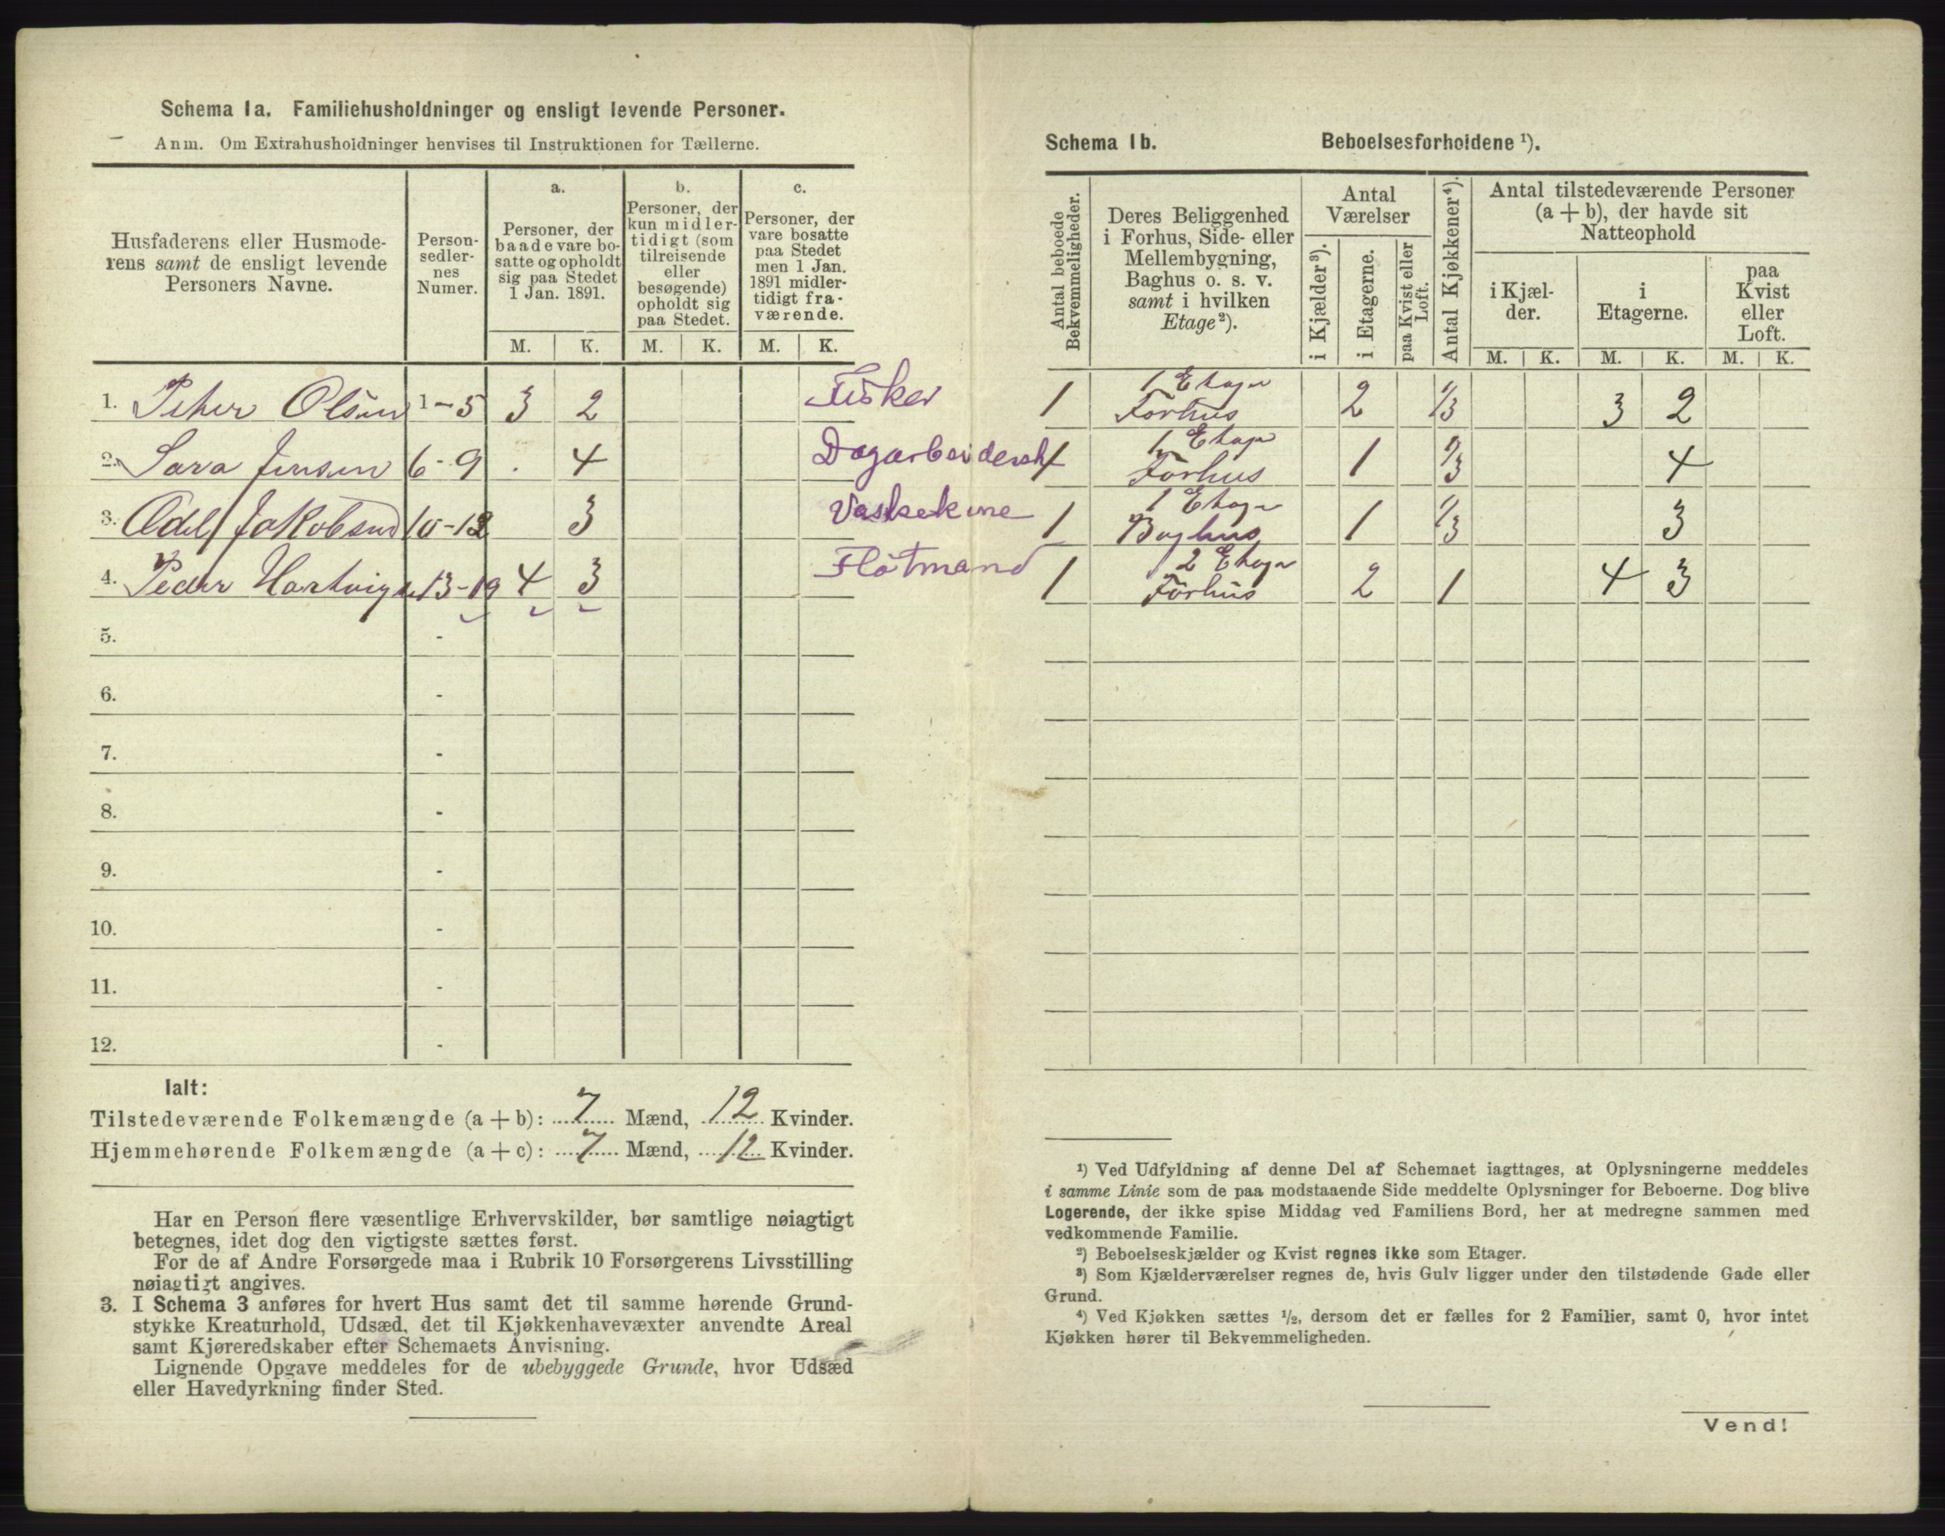 Schema 1a. Familiehusholdninger og ensligt levende Personer.
Anm. Om Extrahusholdninger henvises til Instruktionen for Tællerne.
Husfaderens eller Husmoderens samt de ensligt levende Personers Navne.
Personsedlernes Numer.
a. Personer, der baade vare bosatte og opholdt sig paa Stedet 1 Jan. 1891.
b. Personer, der kun midlertidigt (som tilreisende eller besøgende) opholdt sig paa Stedet.
c. Personer, der vare bosatte paa Stedet men 1 Jan. 1891 midlertidigt fraværende.
M. K. M. K. M. K.
1. Peter Olsen 1-5 3 2 Fisker
2. Sara Jensen 6-9 . 4 Dagarbeiderske
3. Odel Jakobsen 10-12 3 Vaskekone
4. Peder Hartvigs 13-19 4 3 Fløtmand
5. -
6. -
7. -
8. -
9. -
10. -
11. -
12. -
Ialt:
Tilstedeværende Folkemængde (a+b): 7 Mænd, 12 Kvinder.
Hjemmehørende Folkemængde (a+c): 7 Mænd, 12 Kvinder.
Har en Person flere væsentlige Erhvervskilder, bør samtlige nøiagtigt
betegnes, idet dog den vigtigste sættes først.
For de af Andre Forsørgede maa i Rubrik 10 Forsørgerens Livsstilling
nøiagtigt angives.
3. I Schema 3 anføres for hvert Hus samt det til samme hørende Grund-
stykke Kreaturhold, Udsæd, det til Kjøkkenhavevæxter anvendte Areal
samt Kjøreredskaber efter Schemaets Anvisning.
Lignende Opgave meddeles for de ubebyggede Grunde, hvor Udsæd
eller Havedyrkning finder Sted.
Schema 1b. Beboelsesforholdene ¹).
Antal beboede Bekvemmeligheder.
Deres Beliggenhed i Forhus, Side- eller Mellembygning, Baghus o. s. v. samt i hvilken Etage²).
Antal Værelser
i Kjælder³).
i Etagerne.
paa Kvist eller Loft.
Antal Kjøkkener⁴).
Antal tilstedeværende Personer (a+b), der havde sit Natteophold
i Kjælder.
i Etagerne.
paa Kvist eller Loft.
M. K. M. K. M. K.
1 1 Etage Forhus 2 1/3 3 2
1 1 Etage Forhus 1 1/3 4
1 1 Etage Baghus 1 1/3 3
1 2 Etage Forhus 2 1 4 3
¹) Ved Udfyldning af denne Del af Schemaet iagttages, at Oplysningerne meddeles
i samme Linie som de paa modstaaende Side meddelte Oplysninger for Beboerne. Dog blive
Logerende, der ikke spise Middag ved Familiens Bord, her at medregne sammen med
vedkommende Familie.
²) Beboelseskjælder og Kvist regnes ikke som Etager.
³) Som Kjælderværelser regnes de, hvis Gulv ligger under den tilstødende Gade eller
Grund.
⁴) Ved Kjøkken sættes ½, dersom det er fælles for 2 Familier, samt 0, hvor intet
Kjøkken hører til Bekvemmeligheden.
Vend!